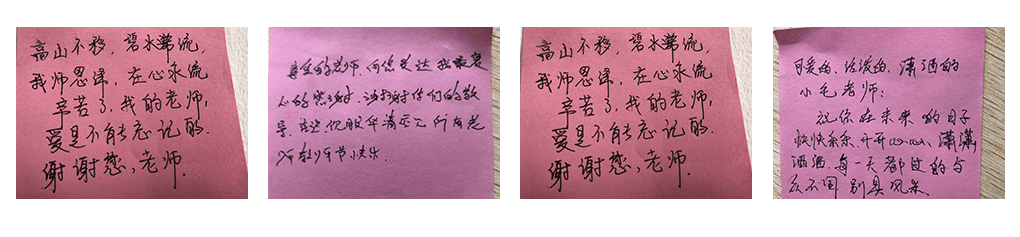 高山不移，碧水常流，
我师恩泽，在心永流
辛苦了，我的老师，
爱是不能忘记的.
谢谢您，老师.
亲爱的老师，向您表达我最衷
心的感谢，谢谢你们的教
导，在这 祝 所有老
师教师节快乐.
高山不移，碧水常流，
我师恩泽，在心永流
辛苦了，我的老师，
爱是不能忘记的.
谢谢您，老师.
可爱的、活泼的、潇洒的
小毛老师：
祝你在未来的日子
快快乐乐、开开心心、潇潇
洒洒，每一天都过的与
众不同，别具风采